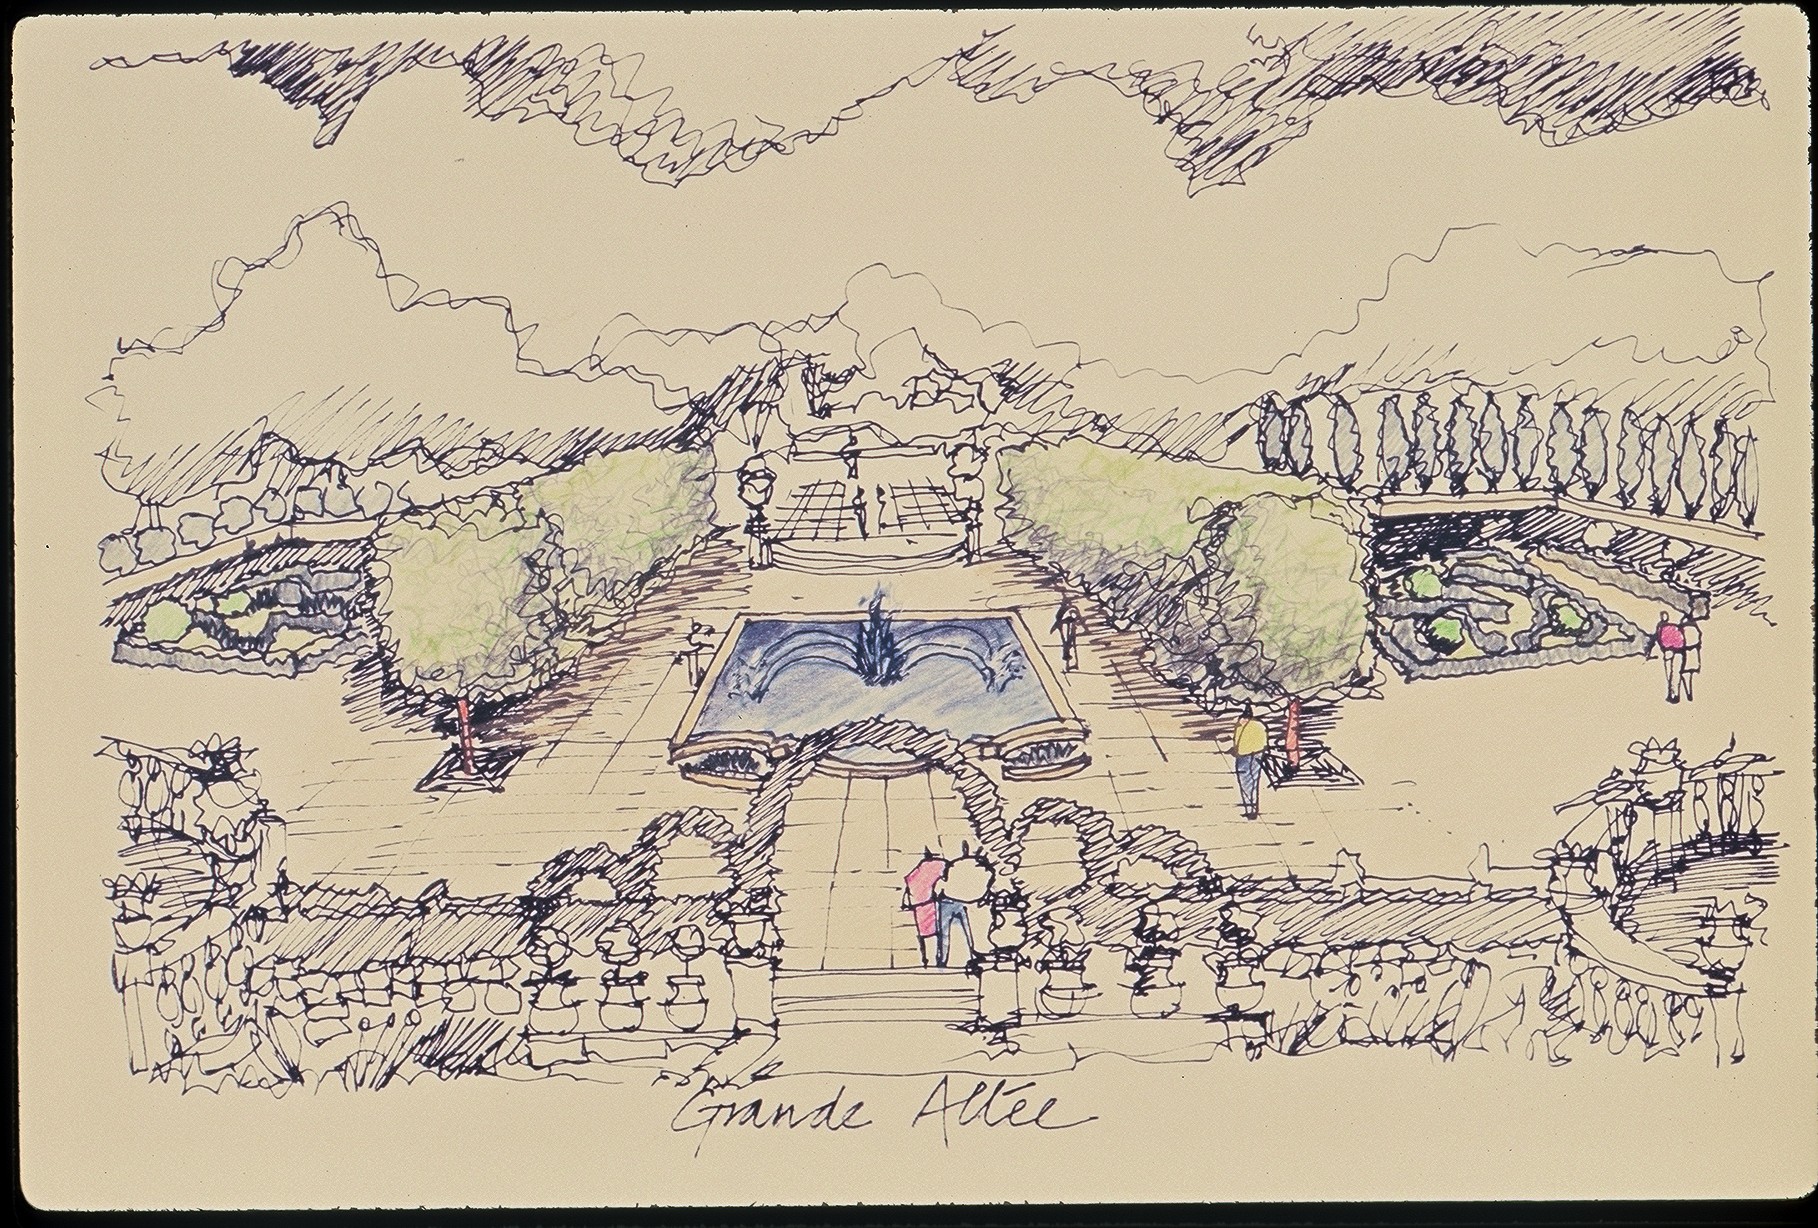 Grande Allée